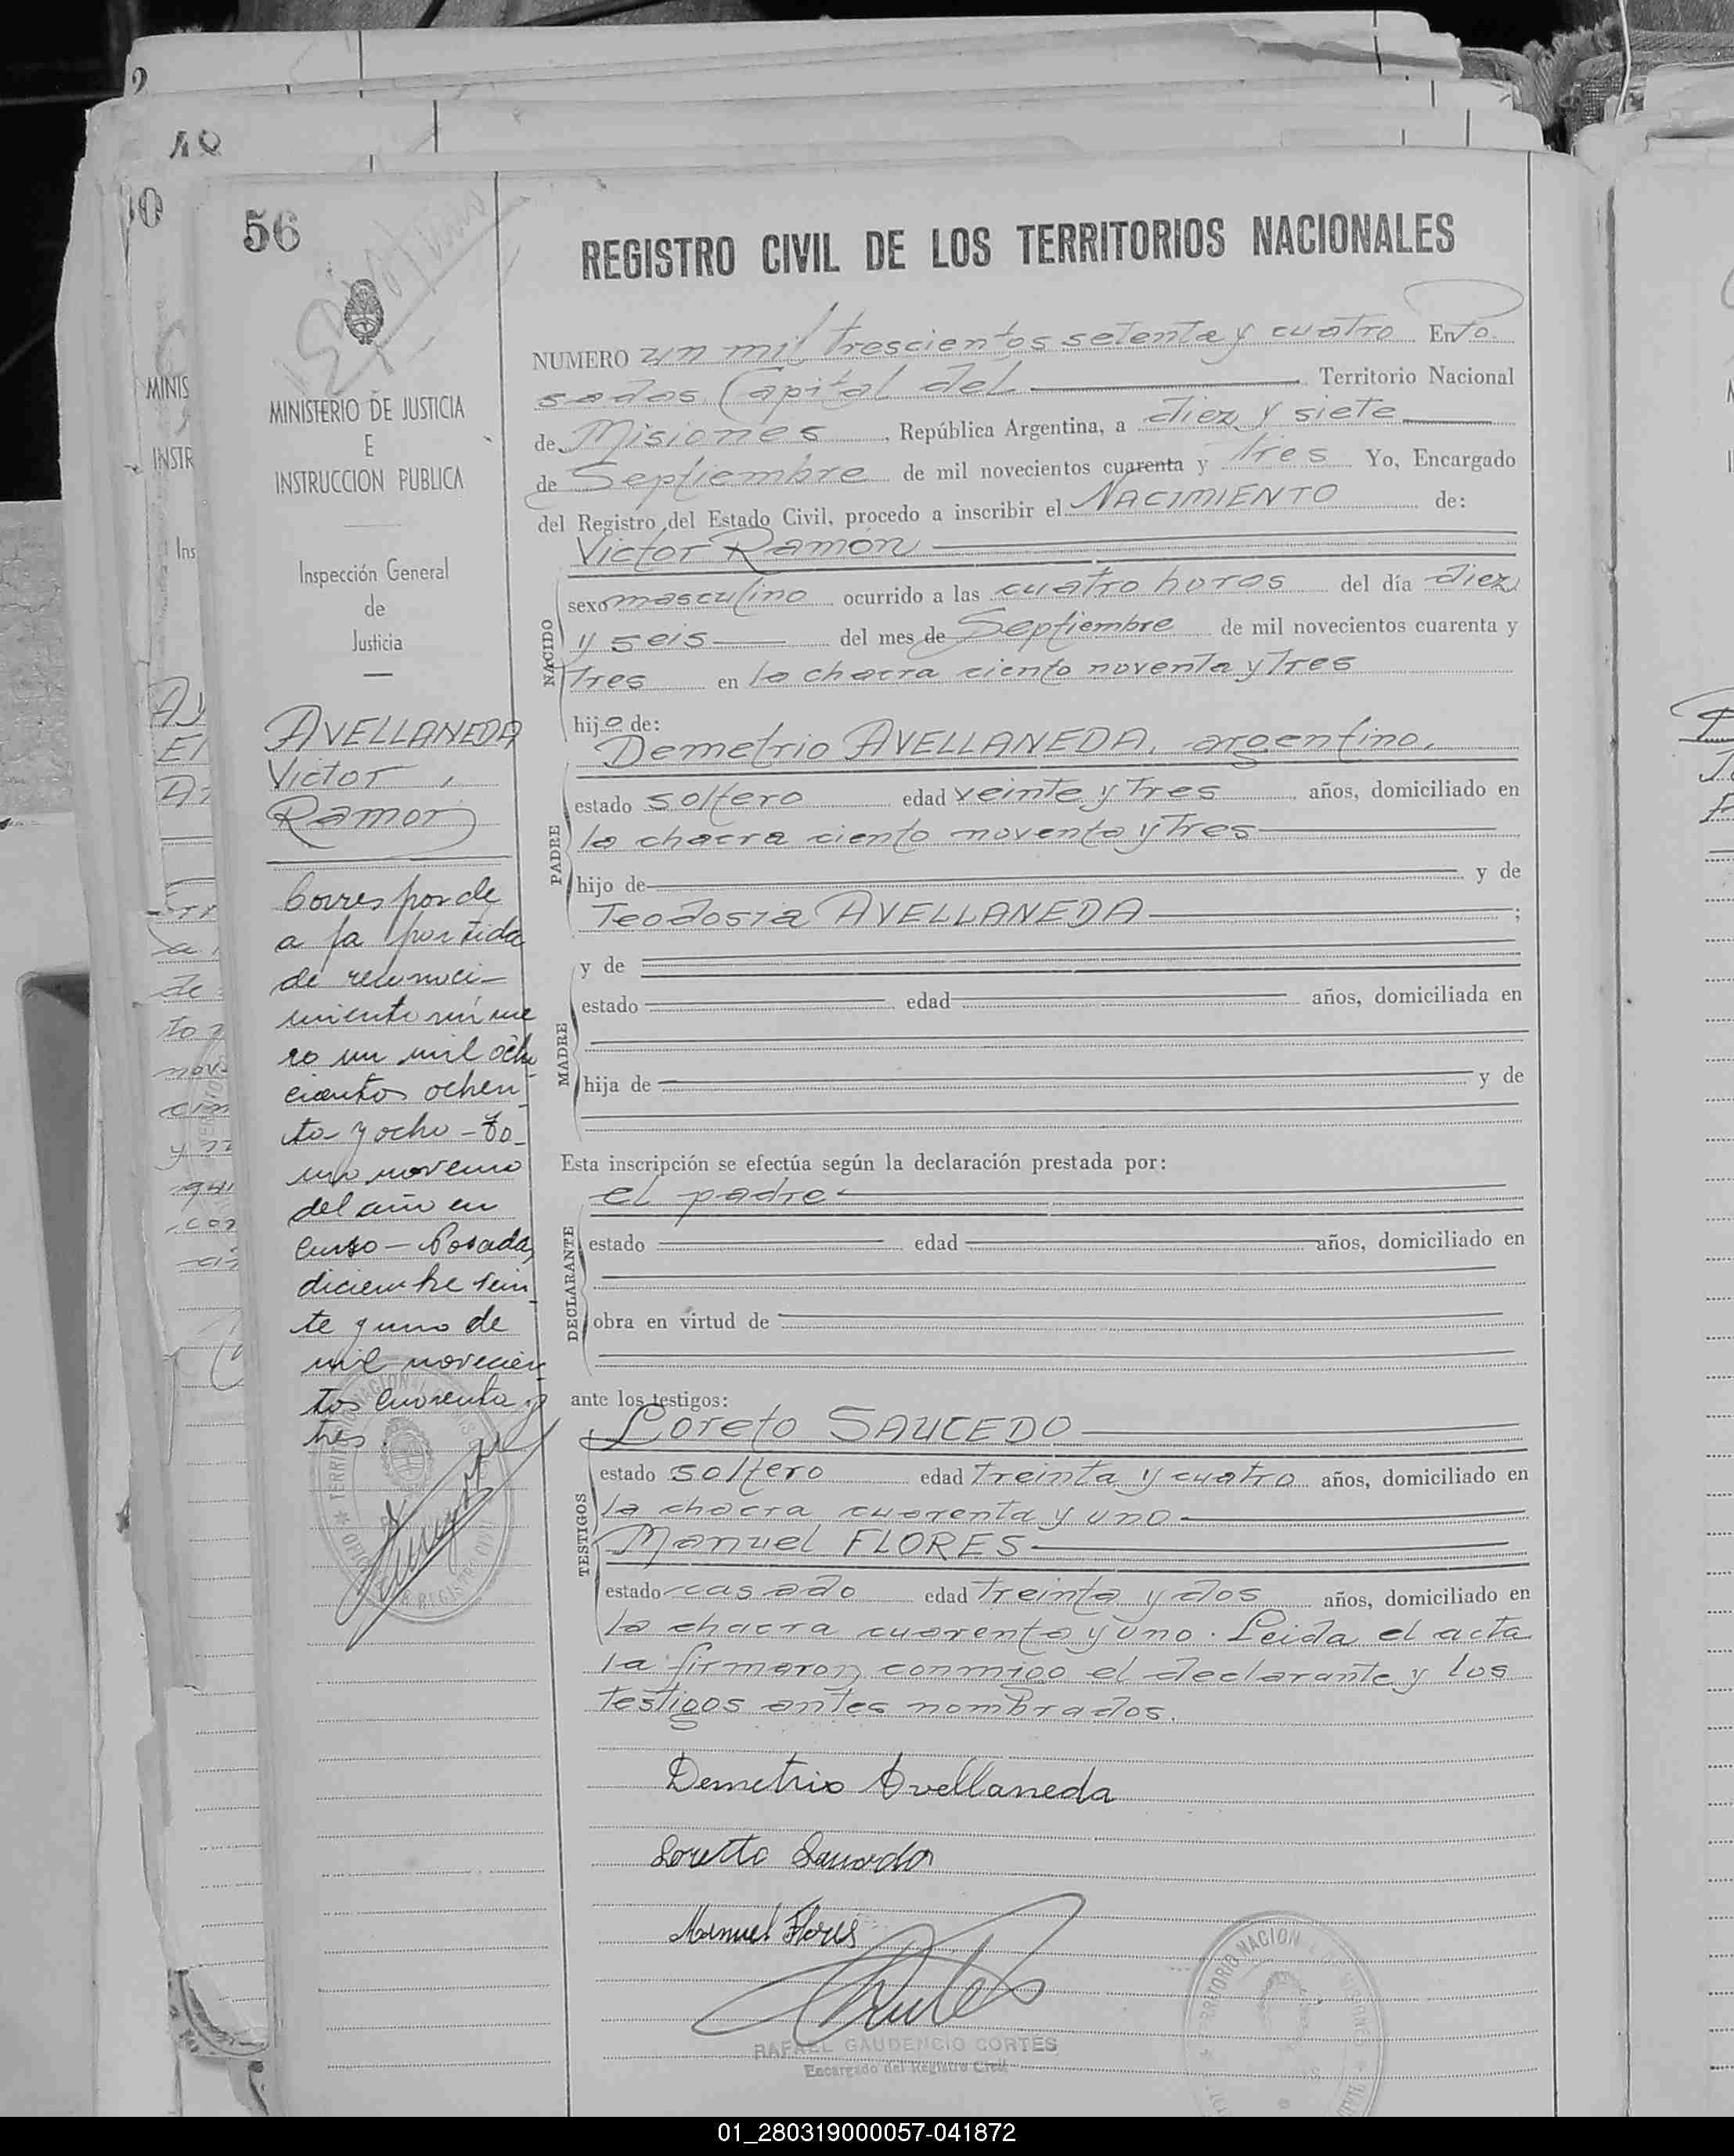 2
48
10
56
MINISTERIO DE JUSTICIA
E
INSTRUCCION PUBLICA
Inspección General
de
Justicia
AVELLANEDA
Victor,
Ramon
Corresponde
a la partida
de reconoci-
miento núme
ro un mil ocho
cientos ochen-
ta y ocho - to-
mo noveno
del año en
curso - Posadas,
diciembre vein-
te y uno de
mil novecien
tos cuarenta y
tres.
REGISTRO CIVIL DE LOS TERRITORIOS NACIONALES
NUMERO un mil trescientos setenta y cuatro En Po.
sadas, Capital del Territorio Nacional
de Misiones, República Argentina, a diez y siete
de Septiembre de mil novecientos cuarenta y tres Yo, Encargado
del Registro del Estado Civil, procedo a inscribir el NACIMIENTO de:
Victor Ramon
NACIDO
sexo masculino ocurrido a las cuatro horas del día diez
y seis del mes de Septiembre de mil novecientos cuarenta y
tres en la chacra ciento noventa y tres
hijo de:
Demetrio AVELLANEDA, argentino,
PADRE
estado soltero edad veinte y tres años, domiciliado en
la chacra ciento noventa y tres
hijo de y de
Teodosia AVELLANEDA ;
y de
MADRE
estado edad años, domiciliada en
hija de y de
Esta inscripción se efectúa según la declaración prestada por:
el padre
DECLARANTE
estado edad años, domiciliado en
obra en virtud de
ante los testigos:
Loreto SAUCEDO
TESTIGOS
estado soltero edad treinta y cuatro años, domiciliado en
la chacra cuarenta y uno
Manuel FLORES
estado casado edad treinta y dos años, domiciliado en
la chacra cuarenta y uno. Leida el acta
la firmaron conmigo el declarante y los
testigos antes nombrados.
Demetrio Avellaneda
Loretto Saucedo
Manuel Flores
RAFAEL GAUDENCIO CORTÉS
Encargado del Registro Civil
01_280319000057-041872